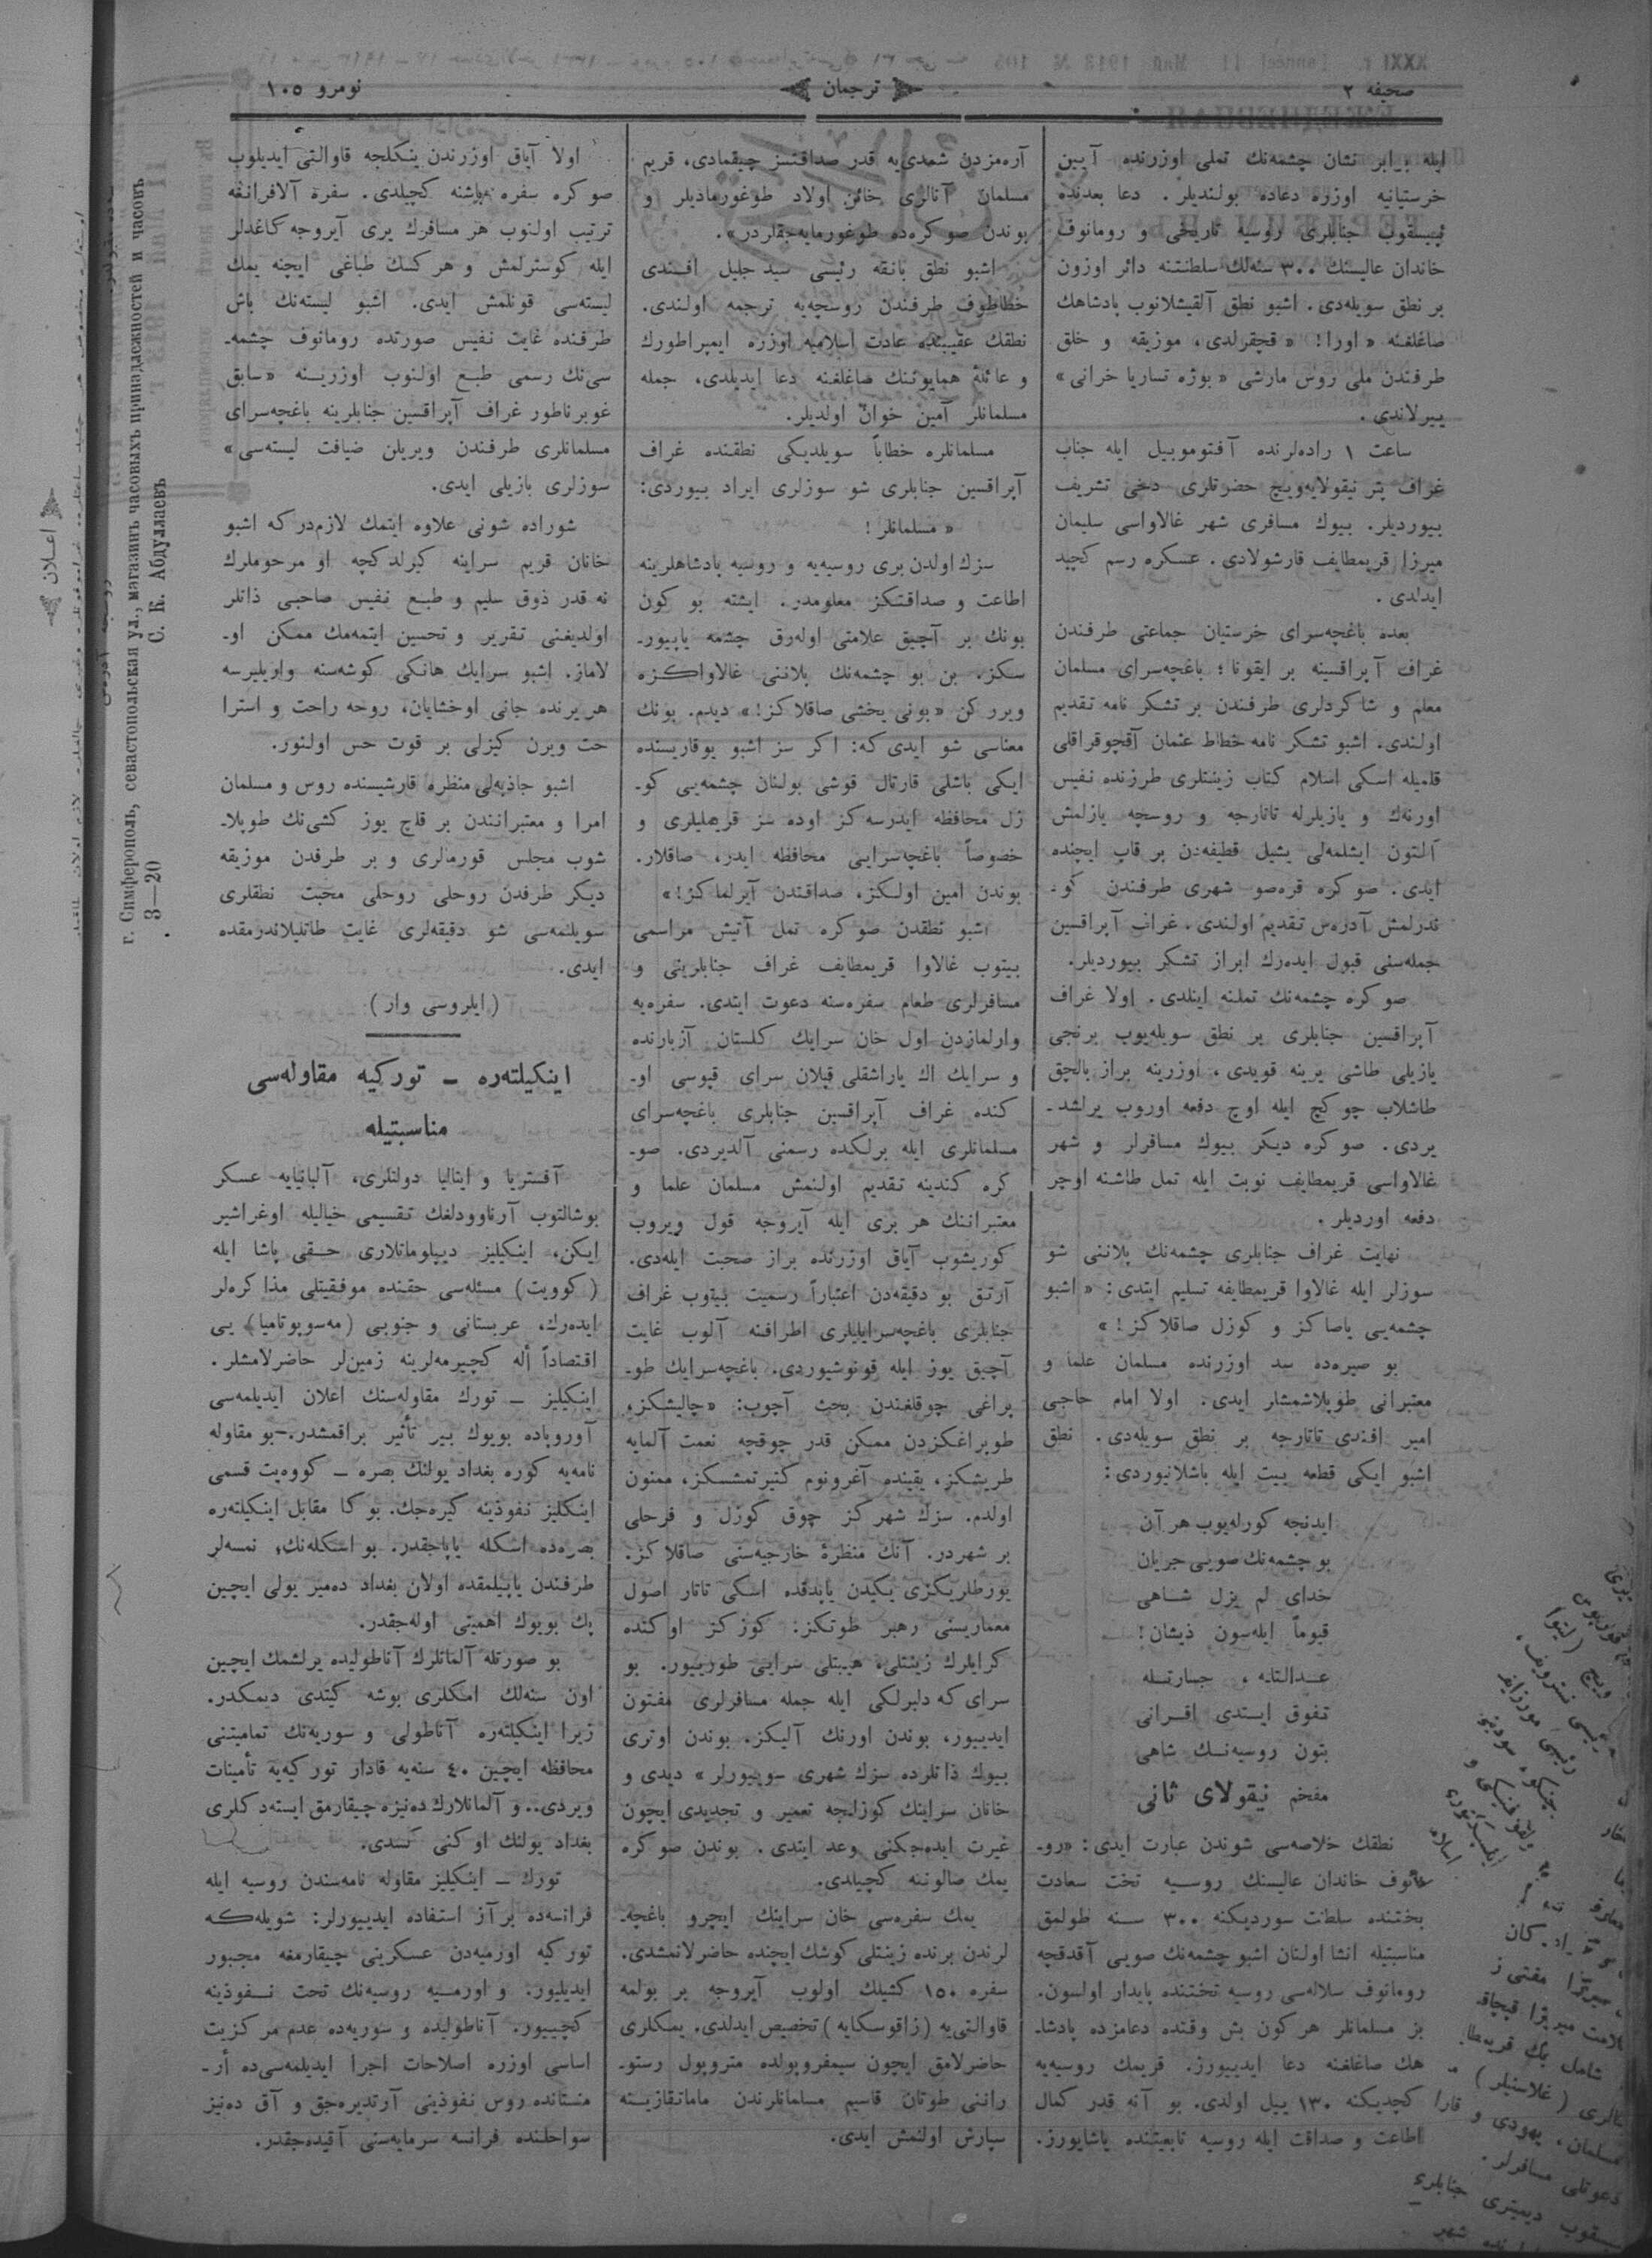 صحیفه ٢
ترجمان
نومرو ١٠٥
ایله برابر نشان چشمه‌نك تملی اوزرنده آیین
خرستیانیه اوزره دعاده بولندیلر. دعا بعدنده
ئپیسقوپ جنابلری روسیه تاریخی و رومانوف
خاندان عالیسنك ٣٠٠ سنه‌لك سلطنتنه دائر اوزون
بر نطق سویله‌دی. اشبو نطق آلقیشلانوب پادشاهك
صاغلغنه « اورا! » قچقرلدی، موزیقه و خلق
طرفندن ملی روس مارشی « بوژه تساریا خرانی »
ییرلاندی.
ساعت ١ راده‌لرنده آفتوموبیل ایله جناب
غراف پتر نیقولایه‌ویچ حضرتلری دخی تشریف
بیوردیلر. بیوك مسافری شهر غالاواسی سلیمان
میرزا قریمطایف قارشولادی. عسکره رسم کچید
ایدلدی.
بعده باغچه‌سرای خرستیان جماعتی طرفندن
غراف آپراقسینه بر ایقونا؛ باغچه‌سرای مسلمان
معلم و شاکردلری طرفندن بر تشکر نامه تقدیم
اولندی. اشبو تشکر نامه خطاط عثمان آقچوقراقلی
قلمیله اسکی اسلام کتاب زینتلری طرزنده نفیس
اورنه‌ك و یازیلرله تاتارجه و روسچه یازلمش
آلتون ایشلمه‌لی یشیل قطیفه‌دن بر قاپ ایچنده
ایدی. صوکره قره‌صو شهری طرفندن کو-
ندرلمش آدره‌س تقدیم اولندی. غراف آپراقسین
جمله‌سنی قبول ایده‌رك ابراز تشکر بیوردیلر.
صوکره چشمه‌نك تملنه اینلدی. اولا غراف
آپراقسین جنابلری بر نطق سویله‌یوب برنجی
یازیلی طاشی یرینه قویدی، اوزرینه براز بالچق
طاشلاب چوکچ ایله اوچ دفعه اوروب یرلشد-
یردی. صوکره دیکر بیوك مسافرلر و شهر
غالاواسی قریمطایف نوبت ایله تمل طاشنه اوچر
دفعه اوردیلر.
نهایت غراف جنابلری چشمه‌نك پلاننی شو
سوزلر ایله غالاوا قریمطایفه تسلیم ایتدی: « اشبو
چشمه‌یی یاصاکز و کوزل صاقلاکز! »
بو صیره‌ده سد اوزرنده مسلمان علما و
معتبرانی طوپلاشمشلر ایدی. اولا امام حاجی
امیر افندی تاتارجه بر نطق سویله‌دی. نطق
اشبو ایکی قطعه بیت ایله باشلانیوردی:
ایدنجه کورله‌یوب هر آن
بو چشمه‌نك صویی جریان
خدای لم یزل شاهی
قیوماً ایله‌سون ذیشان!
عدالتله، جسارتله
تفوق ایتدی اقرانی
بتون روسیه‌نك شاهی
مفخم نیقولای ثانی
نطقك خلاصه‌سی شوندن عبارت ایدی: «رو-
مانوف خاندان عالیسنك روسیه تخت سعادت
بختنده سلطنت سوردیکنه ٣٠٠ سنه طولمق
مناسبتیله انشا اولنان اشبو چشمه‌نك صویی آقدقچه
رومانوف سلاله‌سی روسیه تختنده پایدار اولسون.
بز مسلمانلر هر کون بش وقتده دعامزده پادشا-
هك صاغلغنه دعا ایدییورز. قریمك روسیه‌یه
کچدیکنه ١٣٠ ییل اولدی. بو آنه قدر کمال
اطاعت و صداقت ایله روسیه تابعیتنده یاشایورز.
آره‌مزدن شمدی‌یه قدر صداقتسز چیقمادی، قریم
مسلمان آنالری خائن اولاد طوغورمادیلر و
بوندن صوکره‌ده طوغورمایه‌جقلردر».
اشبو نطق بانقه رئیسی سید جلیل افندی
خطاطوف طرفندن روسچه‌یه ترجمه اولندی.
نطقك عقیبنده عادت اسلامیه اوزره ایمپراطورك
و عائلهٔ همایوننك صاغلغنه دعا ایدیلدی، جمله
مسلمانلر آمین خوان اولدیلر.
مسلمانلره خطاباً سویلدیکی نطقنده غراف
آپراقسین جنابلری شو سوزلری ایراد بیوردی:
« مسلمانلر!
سزك اولدن بری روسیه‌یه و روسیه پادشاهلرینه
اطاعت و صداقتکز معلومدر. ایشته بو کون
بونك بر آچیق علامتی اوله‌رق چشمه یاپیور-
سکز. بن بو چشمه‌نك پلاننی غالاواکزه
ویررکن « بونی یخشی صاقلاکز! » دیدم. بونك
معناسی شو ایدی که: اکر سز اشبو یوقاریسنده
ایکی باشلی قارتال قوشی بولنان چشمه‌یی کو-
زل محافظه ایدرسه‌کز اوده سز قریملیلری و
خصوصاً باغچه‌سرایی محافظه ایدر، صاقلار.
بوندن امین اولکز، صداقتدن آیرلماکز! »
اشبو نطقدن صوکره تمل آتیش مراسمی
بیتوب غالاوا قریمطایف غراف جنابلرینی و
مسافرلری طعام سفره‌سنه دعوت ایتدی. سفره‌یه
وارلمازدن اول خان سراینك کلستان آزبارنده
و سراینك اك یاراشقلی قپلان سرای قپوسی او-
کنده غراف آپراقسین جنابلری باغچه‌سرای
مسلمانلری ایله برلکده رسمنی آلدیردی. صو-
کره کندینه تقدیم اولنمش مسلمان علما و
معتبراننك هر بری ایله آیروجه قول ویروب
کوریشوب آیاق اوزرنده براز صحبت ایله‌دی.
آرتق بو دقیقه‌دن اعتباراً رسمیت بیتوب غراف
جنابلری باغچه‌سرایلیلری اطرافنه آلوب غایت
آچیق یوز ایله قونوشیوردی. باغچه‌سرایك طو-
پراغی چوقلغندن بحث آچوب: «چالیشکز،
طوپراغکزدن ممکن قدر چوقچه نعمت آلمایه
طریشکز، یقینده آغرونوم کتیرتمشسکز، ممنون
اولدم. سزك شهرکز چوق کوزل و فرحلی
بر شهردر. آنك منظرهٔ خارجیه‌سنی صاقلاکز.
یورطلریکزی یکیدن یاپدقده اسکی تاتار اصول
معماریسنی رهبر طوتکز: کوزکز اوکنده
کرایلرك زینتلی، هیبتلی سرایی طورییور. بو
سرای که دلبرلکی ایله جمله مسافرلری مفتون
ایدییور، بوندن اورنك آلیکز. بوندن اوتری
بیوك ذاتلرده سزك شهری سوییورلر» دیدی و
خانان سراینك کوزلجه تعمیر و تجدیدی ایچون
غیرت ایده‌جکنی وعد ایتدی. بوندن صوکره
یمك صالوننه کچیلدی.
یمك سفره‌سی خان سراینك ایچرو باغچه-
لرندن برنده زینتلی کوشك ایچنده حاضرلانمشدی.
سفره ١٥٠ کشیلك اولوب آیروجه بر بولمه
قاوالتی‌یه (زاقوسکایه) تخصیص ایدلدی. یمکلری
حاضرلامق ایچون سیمفروپولده متروپول رستو-
راننی طوتان قاسیم مسلمانلرندن ماماتقازینه
سپارش اولنمش ایدی.
اولا آیاق اوزرندن ینکلجه قاوالتی ایدیلوب
صوکره سفره باشنه کچیلدی. سفره آلافرانغه
ترتیب اولنوب هر مسافرك یری آیروجه کاغدلر
ایله کوسترلمش و هر کسك طباغی ایچنه یمك
لیسته‌سی قونلمش ایدی. اشبو لیسته‌نك باش
طرفنده غایت نفیس صورتده رومانوف چشمه-
سی‌نك رسمی طبع اولنوب اوزرینه «سابق
غوبرناطور غراف آپراقسین جنابلرینه باغچه‌سرای
مسلمانلری طرفندن ویریلن ضیافت لیسته‌سی»
سوزلری یازیلی ایدی.
شوراده شونی علاوه ایتمك لازم‌در که اشبو
خانان قریم سراینه کیرلدکچه او مرحوملرك
نه قدر ذوق سلیم و طبع نفیس صاحبی ذاتلر
اولدیغنی تقریر و تحسین ایتمه‌مك ممکن او-
لاماز. اشبو سرایك هانکی کوشه‌سنه واریلیرسه
هر یرنده جانی اوخشایان، روحه راحت و استرا
حت ویرن کیزلی بر قوت حس اولنور.
اشبو جاذبه‌لی منظره قارشیسنده روس و مسلمان
امرا و معتبرانندن بر قاچ یوز کشی‌نك طوپلا-
شوب مجلس قورمالری و بر طرفدن موزیقه
دیکر طرفدن روحلی روحلی محبت نطقلری
سویلنمه‌سی شو دقیقه‌لری غایت طاتلیلاندرمقده
ایدی.
(ایلروسی وار)
اینکیلتەره – تورکیه مقاوله‌سی
مناسبتیله
آفستریا و ایتالیا دولتلری، آلبانیایه عسکر
بوشالتوب آرناوودلغك تقسیمی خیالیله اوغراشیر
ایکن، اینکیلیز دیپلوماتلاری حقی پاشا ایله
(کوویت) مسئله‌سی حقنده موفقیتلی مذاکره‌لر
ایده‌رك، عربستانی و جنوبی (مه‌سوپوتامیا) یی
اقتصاداً أله کچیرمه‌لرینه زمین‌لر حاضرلامشلر.
اینکیلیز – تورك مقاوله‌سنك اعلان ایدیلمه‌سی
آوروپاده بویوك بیر تأثیر براقمشدر.-بو مقاوله
نامه‌یه کوره بغداد یولنك بصره – کووه‌یت قسمی
اینکلیز نفوذینه کیره‌جك. بوکا مقابل اینکیلته‌ره
بصره‌ده اسکله یاپاجقدر. بو اسکله‌نك، نمسه‌لر
طرفندن یاپیلمقده اولان بغداد ده‌میر یولی ایچین
پك بویوك اهمیتی اوله‌جقدر.
بو صورتله آلمانلرك آناطولیده یرلشمك ایچین
اون سنه‌لك امکلری بوشه کیتدی دیمکدر.
زیرا اینکیلته‌ره آناطولی و سوریه‌نك تمامیتنی
محافظه ایچین ٤٠ سنه‌یه قادار تورکیه‌یه تأمینات
ویردی.. و آلمانلارك ده‌نیزه چیقارمق ایسته‌دکلری
بغداد یولنك اوکنی کسدی.
تورك – اینکیلیز مقاوله نامه‌سندن روسیه ایله
فرانسه‌ده بر آز استفاده ایدییورلر: شویله‌که
تورکیه اورمیه‌دن عسکرینی چیقارمغه مجبور
ایدیلیور: و اورمیه روسیه‌نك تحت نفوذینه
کچییور. آناطولیده و سوریه‌ده عدم مرکزیت
اساسی اوزره اصلاحات اجرا ایدیلمه‌سی‌ده أر-
منستانده روس نفوذینی آرتدیره‌جق و آق ده‌نیز
سواحلنده فرانسه سرمایه‌سنی آقیده‌جقدر.
اعلان
г. Симферополь, севастопольская ул., магазинъ часовыхъ принадлежностей и часовъ
С. К. Абдуллаевъ
3—20